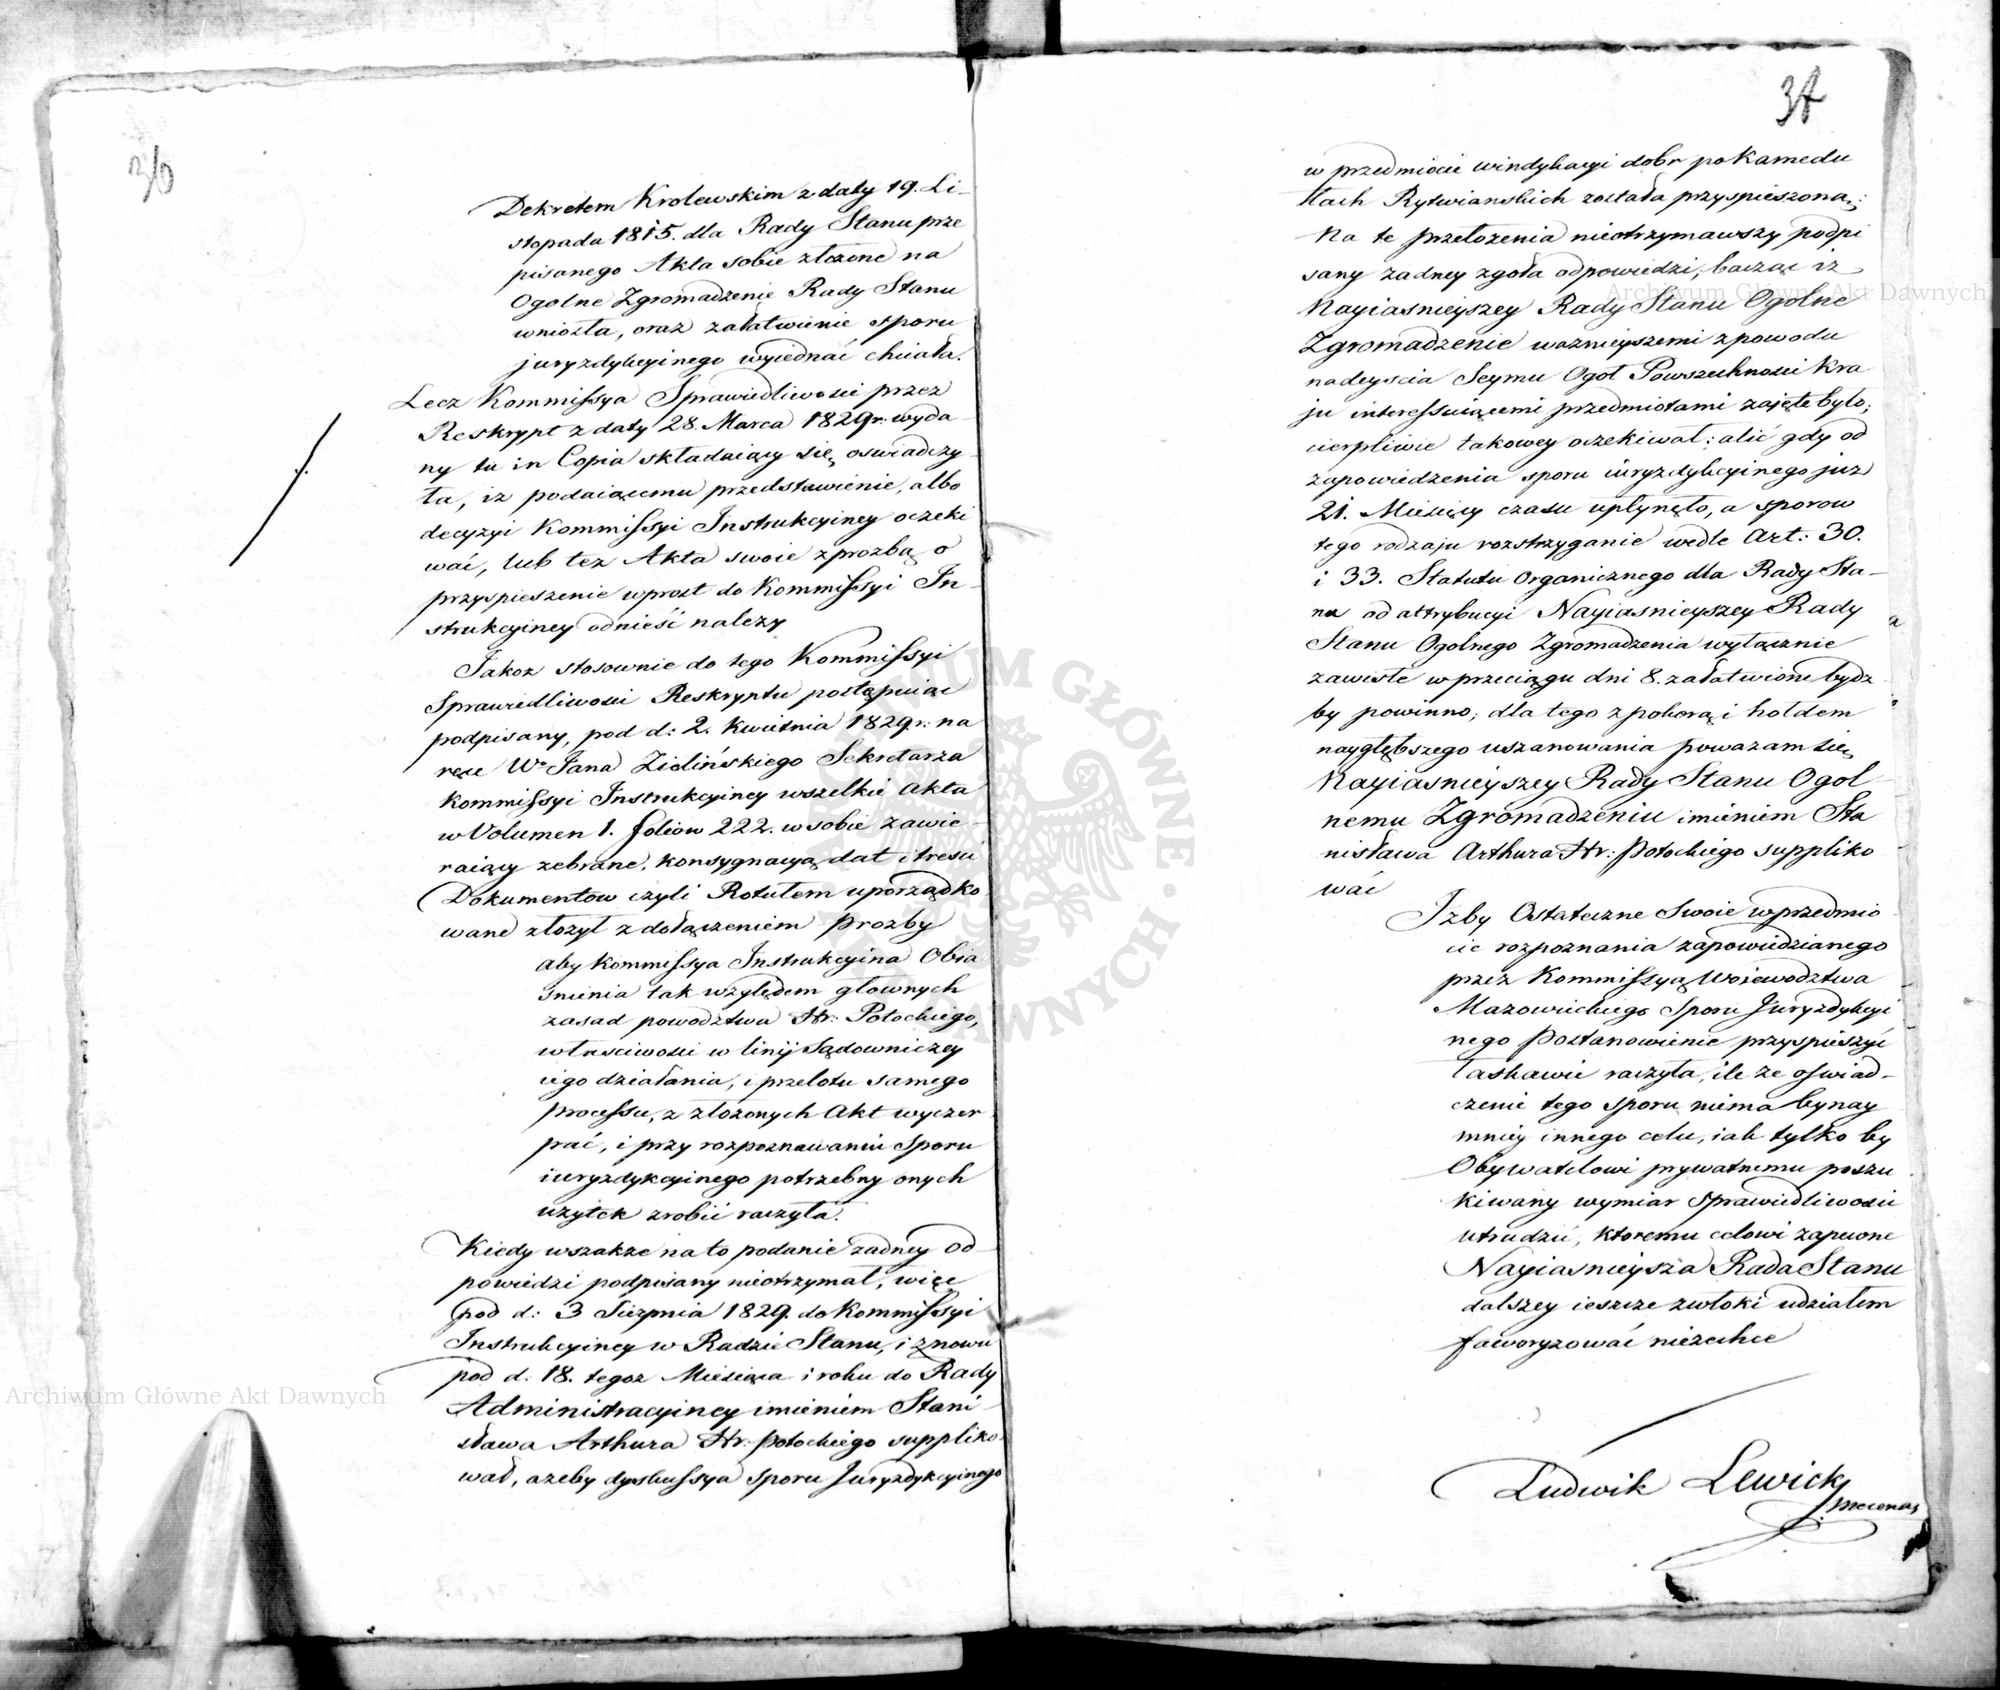 36
Dekretem Krolewskim z daty 19. Li-
stopada 1815. dla Rady Stanu prze
pisanego Akta sobie złożone na
Ogolne Zgromadzenie Rady Stanu
wniosła, oraz załatwienie sporu
juryzdykcyinego wyiednać chciała.
Lecz Kommissya Sprawiedliwości przez
Reskrypt z daty 28. Marca 1829 r: wyda-
ny tu in Copia składaiący się oswiadczy-
ła, iz podaiącemu przedstawienie, albo
decyzyi Kommissyi Instrukcyiney oczeki
wać, lub tez Akta swoie z prozbą o
przyspieszenie wprost do Kommissyi In-
strukcyiney odnieść nalezy
Jakoz stosownie do tego Kommissyi
Sprawiedliwości Reskryptu postąpuiąc
podpisany, pod d: 2. Kwietnia 1829 r: na
ręce Wo Jana Zielińskiego Sekretarza
Kommissyi Instrukcyiney wszelkie Akta
w Volumen 1. foliow 222. w sobie zawie-
raiący zebrane, konsygnacyą dat i tresci
Dokumentow czyli Rotułem uporządko
wane złozył z dołączeniem Prozby
aby Kommissya Instrukcyina Obia
snienia tak względem głownych
zasad powodztwa Hr: Potockiego,
własciwości w linij Sądowniczey
iego działania, i przelotu samego
processu, z złozonych Akt wyczer
pać, i przy rozpoznawaniu Sporu
iuryzdykcyinego potrzebny onych
użytek zrobić raczyła.
Kiedy wszakze na to podanie zadney od-
powiedzi podpisany nieotrzymał, więc
pod d: 3 Sierpnia 1829. do Kommissyi
Instrukcyiney w Radzie Stanu, i znowu
pod d. 18. tegoz Miesiąca i roku do Rady
Administracyiney imieniem Stani-
sława Arthura Hr: Potockiego suppliko-
wał, azeby dyskussya sporu Juryzdykcyinego
37
w przedmiocie windykacyi dobr po Kamedu
łach Rytwianskich została przyspieszona.
Na te przełozenia nieotrzymawszy podpi
sany zadney zgoła odpowiedzi, bacząc iz
Nayiasnieyszey Rady Stanu Ogolne
Zgromadzenie waznieyszemi z powodu
nadeyscia Seymu Ogoł Powszechności Kra
ju interessuiącemi przedmiotami zajęte było;
cierpliwie takowey oczekiwał: alić gdy od
zapowiedzenia sporu iuryzdykcyinego juz
21. Miesięcy czasu upłynęło, a sporow
tego rodzaju rozstrzyganie wedle Art: 30.
i 33. Statutu Organicznego dla Rady Sta-
nu od attrybucyi Nayiasnieyszey Rady
Stanu Ogolnego Zgromadzenia wyłącznie
zawisłe w przeciągu dni 8. załatwione bydz
by powinno; dla tego z pokorą i hołdem
naygłębszego uszanowania powazam się
Nayiasnieyszey Rady Stanu Ogol-
nemu Zgromadzeniu imieniem Sta
nisława Arthura Hr: Potockiego suppliko
wać
Izby Ostateczne Swoie w przedmio
cie rozpoznania zapowiedzianego
przez Kommissyą Woiewodztwa
Mazowieckiego Sporu Juryzdykcyi
nego Postanowienie przyspieszyć
łaskawie raczyła, ile ze oswiad-
czenie tego sporu niema bynay
mniey innego celu, iak tylko by
Obywatelowi prywatnemu poszu
kiwany wymiar Sprawiedliwości
utrudzić, ktoremu celowi zapewne
Nayiasnieysza Rada Stanu
dalszey ieszcze zwłoki udziałem
faworyzować niezechce
Ludwik Lewicki
Mecenas
Archiwum Główne Akt Dawnych
Archiwum Główne Akt Dawnych
ARCHIWUM GŁÓWNE AKT DAWNYCH